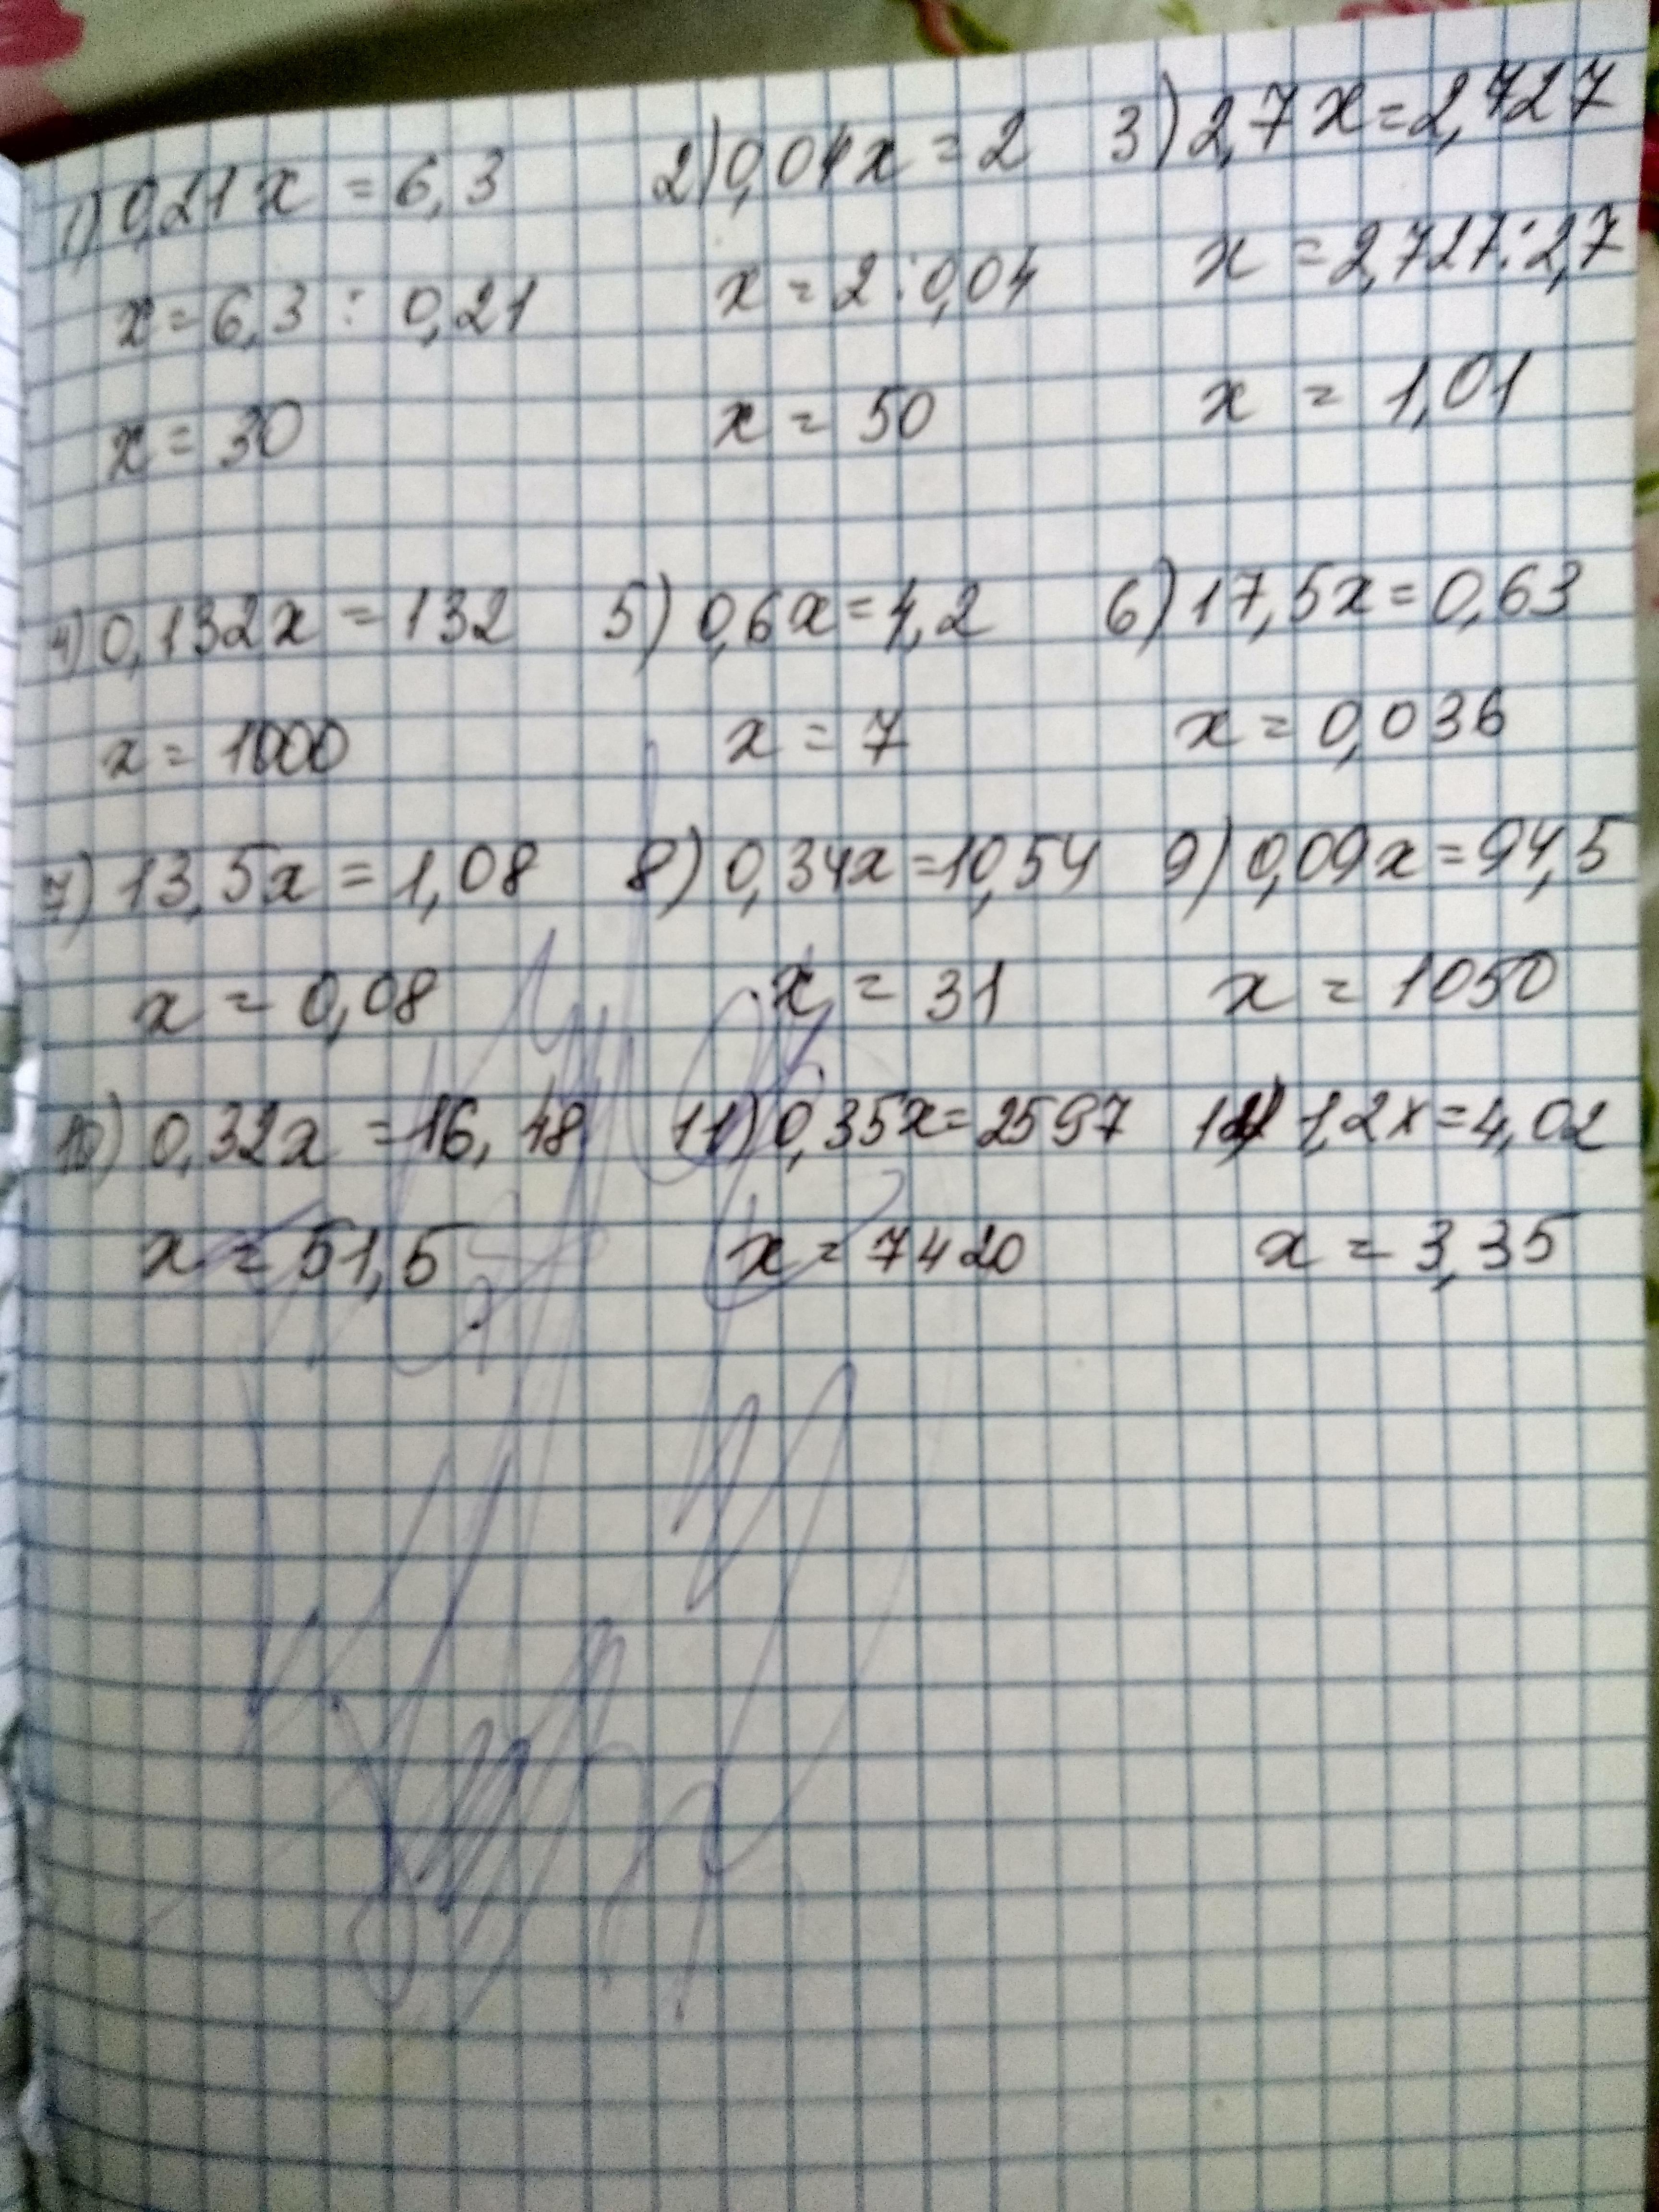 1) 0,21x = 6,3 2) 0,04x = 2 3) 2,7x = 2,727
x = 6,3 : 0,21 x = 2 : 0,04 x = 2,727 : 2,7
x = 30 x = 50 x = 1,01
4) 0,132x = 132 5) 0,6x = 4,2 6) 17,5x = 0,63
x = 1000 x = 7 x = 0,036
7) 13,5x = 1,08 8) 0,34x = 10,54 9) 0,09x = 94,5
x = 0,08 x = 31 x = 1050
10) 0,32x = 16,48 11) 0,35x = 2597 12) 1,2x = 4,02
x = 51,5 x = 7420 x = 3,35